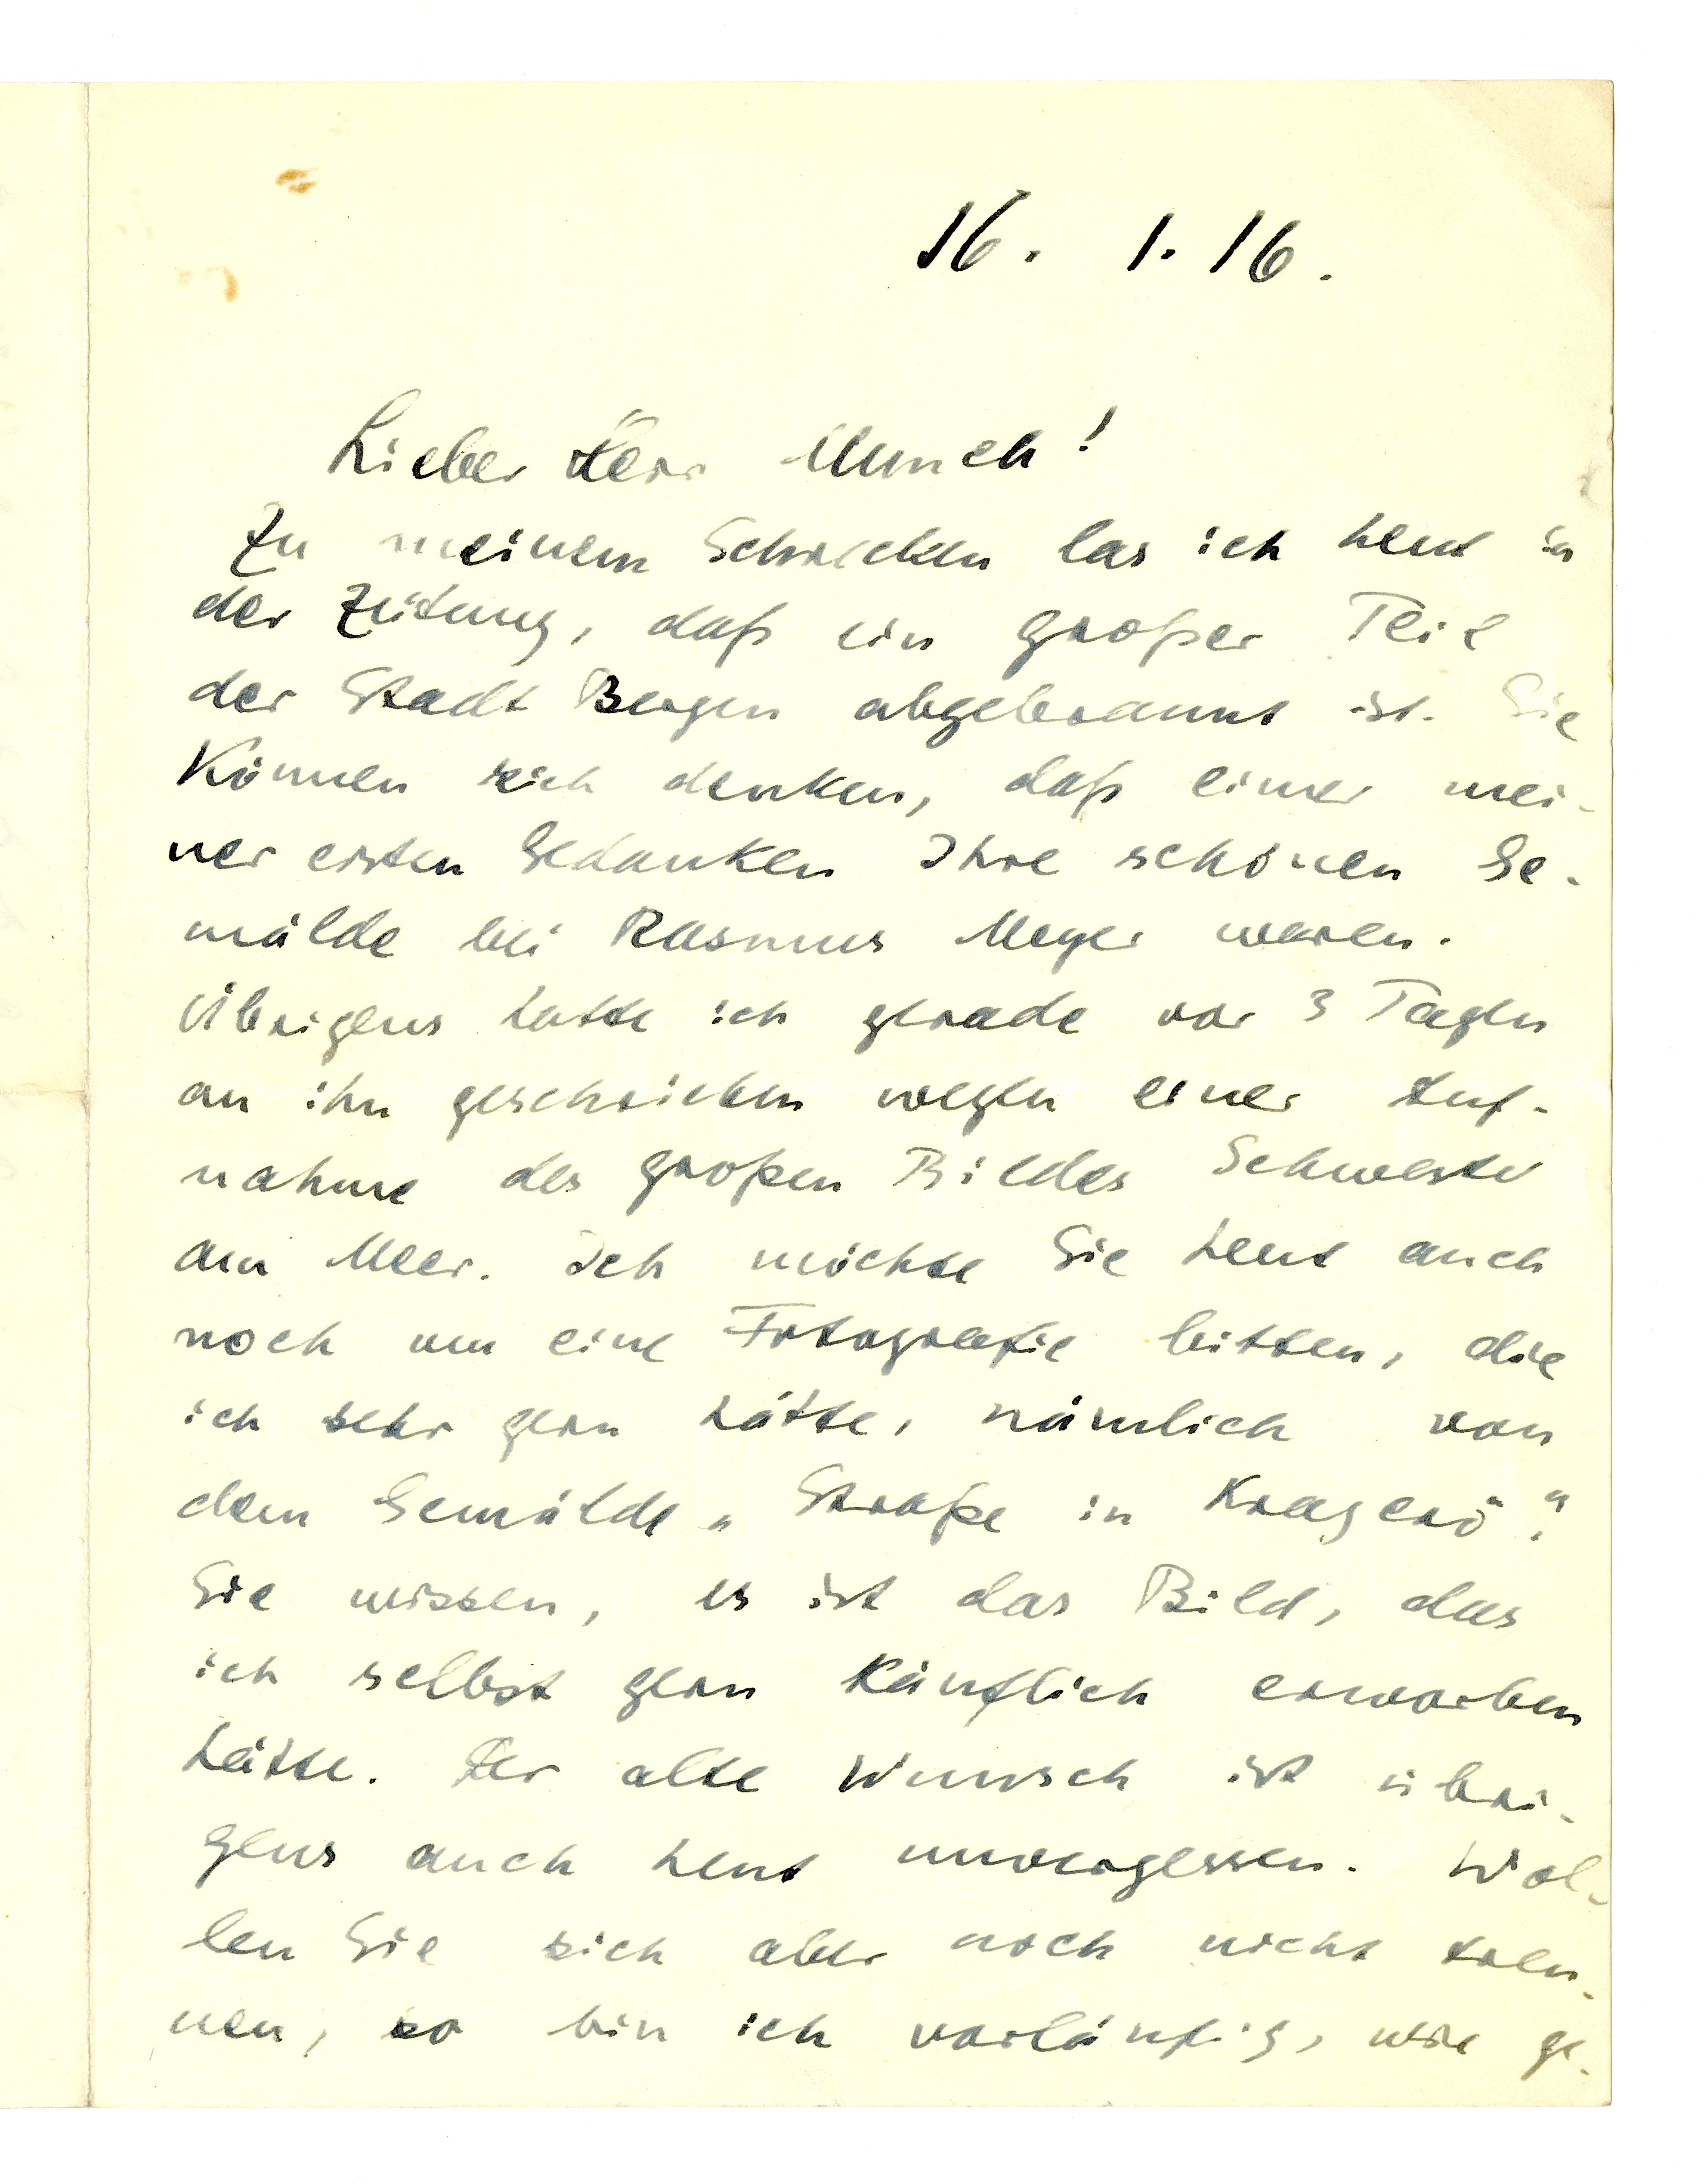 16. 1. 16.
Lieber Herr Munch!
Zu meinem Schrecken las ich heut in
der Zeitung, daß ein großer Teil
der Stadt Bergen abgebrannt ist. Sie
können sich denken, daß einer mei-
ner ersten Gedanken Ihre schönen Ge-
mälde bei Rasmus Meyer waren.
Übrigens hatte ich gerade vor 3 Tagen
an ihn geschrieben wegen einer Auf-
nahme des großen Bildes Schwester
am Meer. Ich möchte Sie heut auch
noch um eine Fotografie bitten, die
ich sehr gern hätte, nämlich von
dem Gemälde „Straße in Kragerö“.
Sie wissen, es ist das Bild, das
ich selbst gern käuflich erworben
hätte. Der alte Wunsch ist übri-
gens auch heut unvergessen. Wol-
len Sie sich aber noch nicht tren-
nen, so bin ich vorläufig, wie ge-